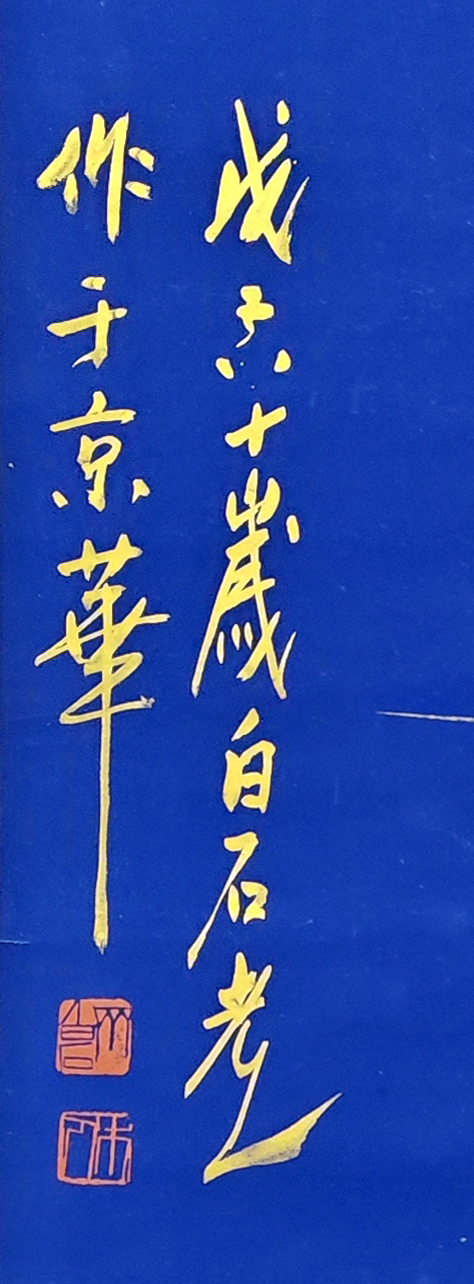 戌六十歲白石老人
作于京華